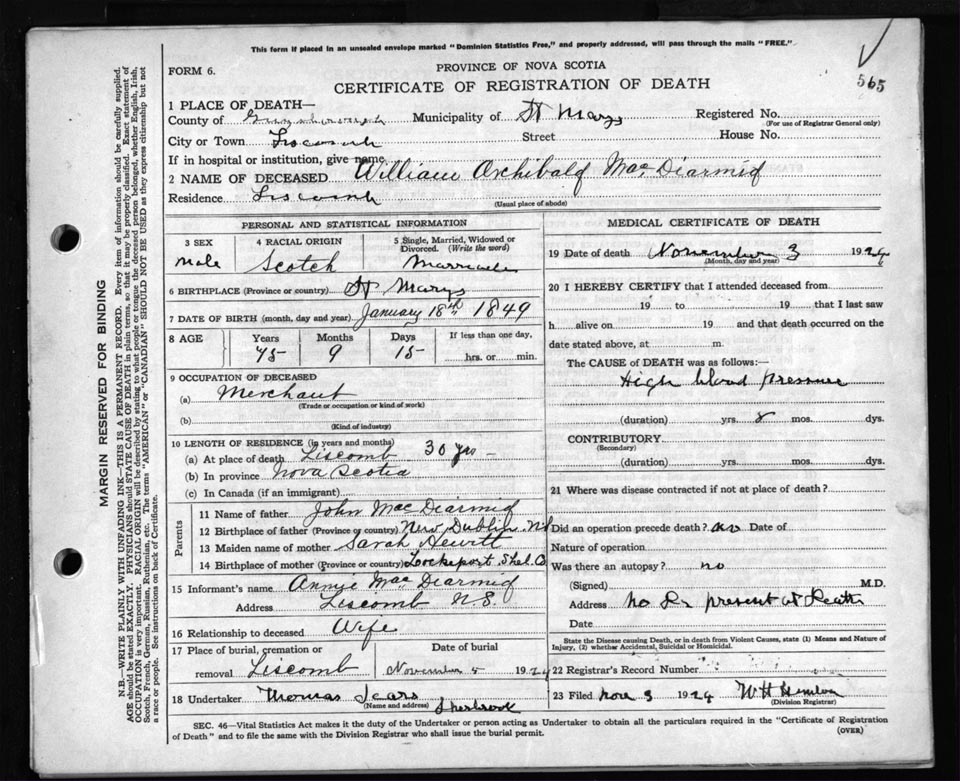 This form if placed in an unsealed envelope marked "Dominion Statistics Free," and properly addressed, will pass through the mails "FREE."
565
FORM 6.
PROVINCE OF NOVA SCOTIA
CERTIFICATE OF REGISTRATION OF DEATH
1 PLACE OF DEATH—
County of Guysborough Municipality of St Marys Registered No.
(For use of Registrar General only)
City or Town Liscomb Street House No.
If in hospital or institution, give name
2 NAME OF DECEASED William Archibald MacDiarmid
Residence Liscomb
(Usual place of abode)
PERSONAL AND STATISTICAL INFORMATION
3 SEX 4 RACIAL ORIGIN 5 Single, Married, Widowed or Divorced. (Write the word)
Male Scotch Married
6 BIRTHPLACE (Province or country) St Marys
7 DATE OF BIRTH (month, day and year) January 18th 1849
8 AGE Years Months Days If less than one day,
75 9 15 hrs. or min.
9 OCCUPATION OF DECEASED
(a) Merchant
(Trade or occupation or kind of work)
(b)
(Kind of industry)
10 LENGTH OF RESIDENCE (in years and months)
(a) At place of death Liscomb 30 yrs -
(b) In province Nova Scotia
(c) In Canada (if an immigrant)
Parents
11 Name of father John MacDiarmid
12 Birthplace of father (Province or country) New Dublin N.S
13 Maiden name of mother Sarah Hewitt
14 Birthplace of mother (Province or country) Lockeport Shel. Co
15 Informant's name Annie MacDiarmid
Address Liscomb N.S.
16 Relationship to deceased Wife
17 Place of burial, cremation or removal Liscomb
Date of burial
November 5 1924
18 Undertaker Thomas Sears
(Name and address) Sherbrook
MEDICAL CERTIFICATE OF DEATH
19 Date of death November 3 1924
(Month, day and year)
20 I HEREBY CERTIFY that I attended deceased from
19 to 19 that I last saw
h alive on 19 and that death occurred on the
date stated above, at m.
The CAUSE of DEATH was as follows:—
High blood pressure
(duration) yrs. 8 mos. dys.
CONTRIBUTORY
(Secondary)
(duration) yrs. mos. dys.
21 Where was disease contracted if not at place of death?
Did an operation precede death? no Date of
Nature of operation
Was there an autopsy? no
(Signed) M.D.
Address No Dr present at Death
Date
State the Disease causing Death, or in death from Violent Causes, state (1) Means and Nature of
Injury, (2) whether Accidental, Suicidal or Homicidal.
22 Registrar's Record Number
23 Filed Nov 3 1924 W H
(Division Registrar)
SEC. 46—Vital Statistics Act makes it the duty of the Undertaker or person acting as Undertaker to obtain all the particulars required in the "Certificate of Registration
of Death" and to file the same with the Division Registrar who shall issue the burial permit.
(OVER)
MARGIN RESERVED FOR BINDING
N.B.—WRITE PLAINLY WITH UNFADING INK—THIS IS A PERMANENT RECORD. Every item of information should be carefully supplied.
AGE should be stated EXACTLY. PHYSICIANS should STATE CAUSE OF DEATH in plain terms, so that it may be properly classified. Exact statement of
OCCUPATION is very important. RACIAL ORIGIN will be described by stating to what people or tongue the deceased person belonged, whether English, Irish,
Scotch, French, German, Russian, Ruthenian, etc. The terms "AMERICAN" or "CANADIAN" SHOULD NOT BE USED as they express citizenship but not
a race or people. See instructions on back of Certificate.